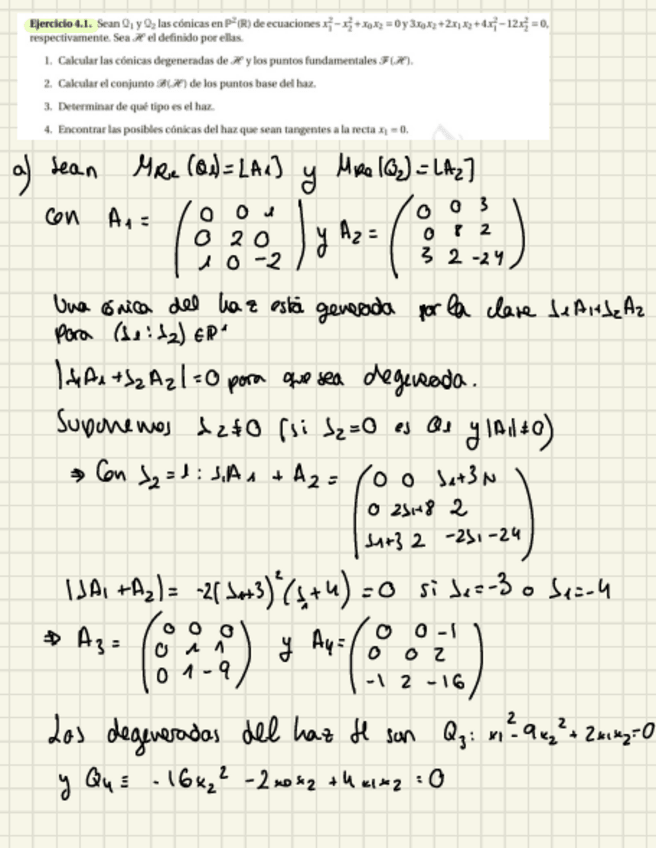 Ejercicio 4.1. Sean Q₁ y Q₂ las cónicas en P²(R) de ecuaciones x₁²−x₂²+x₀x₂ = 0 y 3x₀x₂+2x₁x₂+4x₁²−12x₂² = 0,
respectivamente. Sea ℋ el definido por ellas.
1. Calcular las cónicas degeneradas de ℋ y los puntos fundamentales ℱ(ℋ).
2. Calcular el conjunto ℬ(ℋ) de los puntos base del haz.
3. Determinar de qué tipo es el haz.
4. Encontrar las posibles cónicas del haz que sean tangentes a la recta x₁ = 0.
a) Sean M_Rc (Q₁)=[A₁] y M_Rc (Q₂)=[A₂]
con A₁ = (0 0 1 / 0 2 0 / 1 0 -2) y A₂ = (0 0 3 / 0 8 2 / 3 2 -24)
Una cónica del haz está generada por la clase s₁A₁+s₂A₂
para (s₁:s₂) ∈ P¹
|s₁A₁+s₂A₂|=0 para que sea degenerada.
Suponemos s₂≠0 (si s₂=0 es Q₁ y |A₁|≠0)
⇒ Con s₂=1: s₁A₁ + A₂ = (0 0 s₁+3 / 0 2s₁+8 2 / s₁+3 2 -2s₁-24)
|sA₁+A₂|= -2(s₁+3)²(s₁+4) =0 si s₁=-3 o s₁=-4
⇒ A₃ = (0 0 0 / 0 1 1 / 0 1 -9) y A₄= (0 0 -1 / 0 0 2 / -1 2 -16)
Las degeneradas del haz H son Q₃: x₁²-9x₂²+2x₁x₂=0
y Q₄ ≡ -16x₂² -2x₀x₂ +4x₁x₂ =0